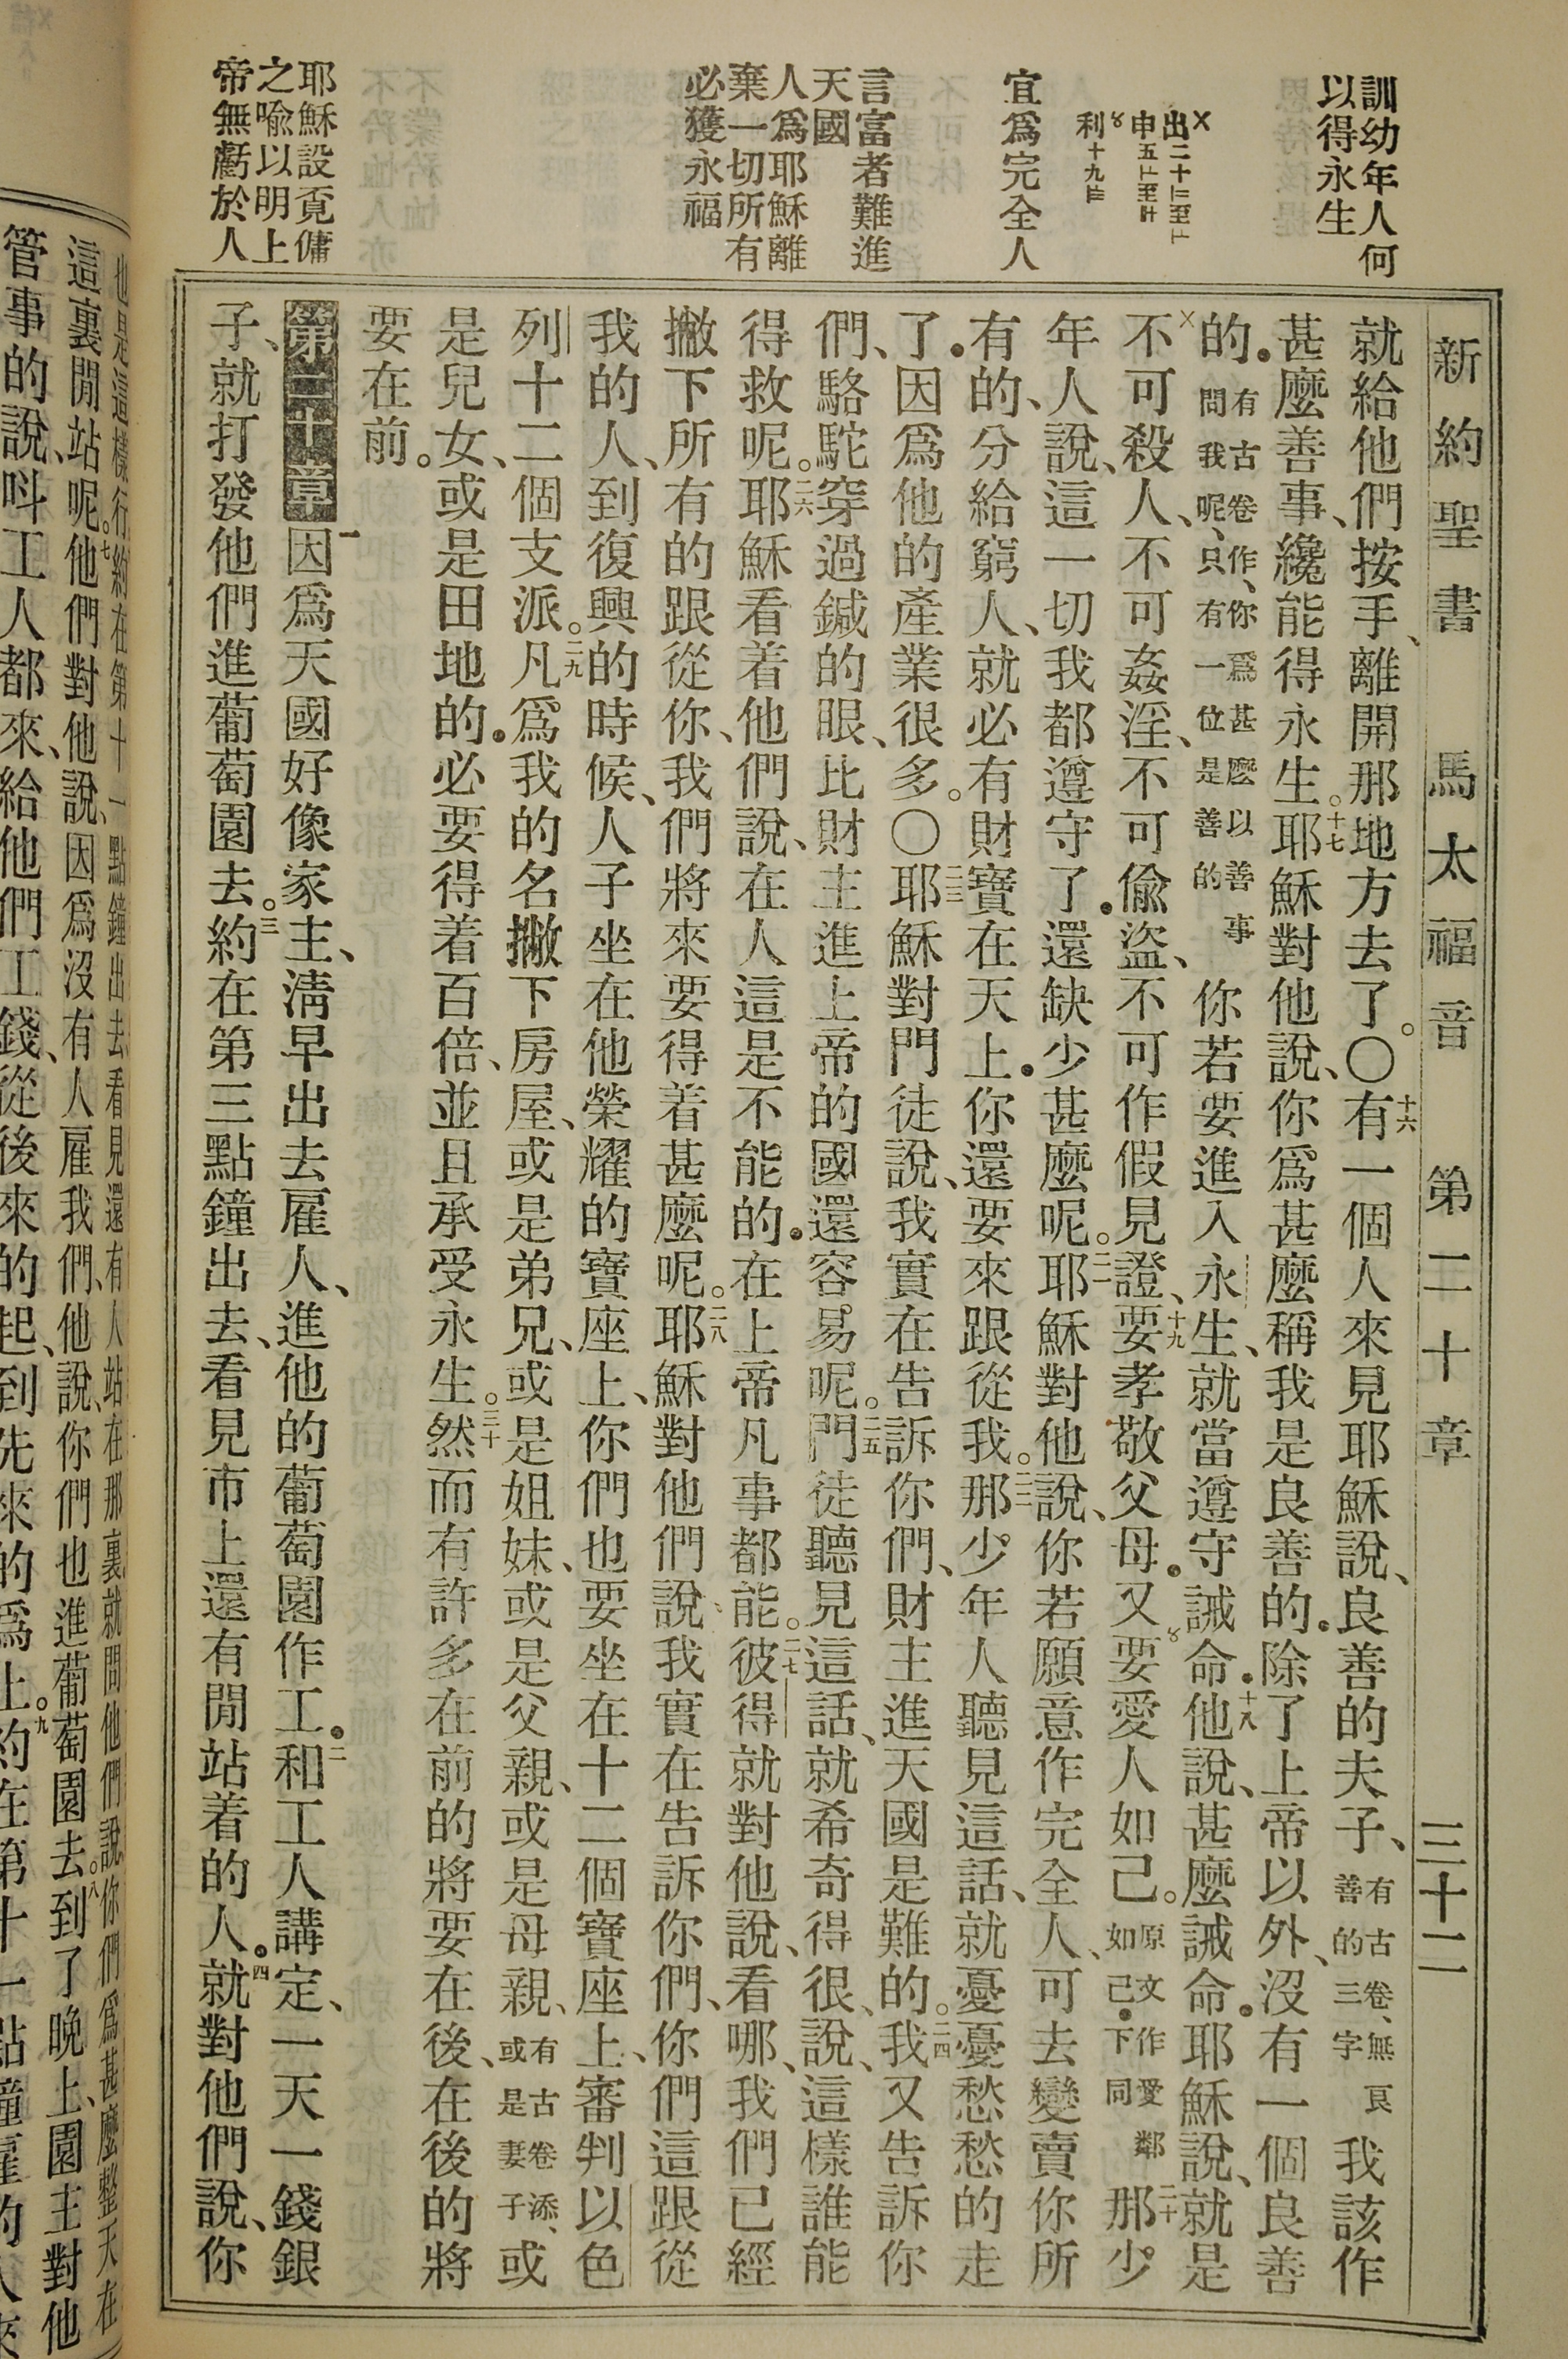 新約聖書 馬太福音 第二十章 三十二
訓幼年人何
以得永生
X
出二十〨至〦
申五〦至卄
利十九
宜爲完全人
言富者難進
天國
人爲耶穌離
棄一切所有
必獲永福
耶穌設覔傭
之喻以明上
帝無虧於人
就給他們按手、離開那地方去了。〇十六有一個人來見耶穌說、良善的夫子、有古卷、無良善的三字我該作
甚麼善事、纔能得永生。十七耶穌對他說、你爲甚麼稱我是良善的.除了上帝以外、沒有一個良善
的.有古卷作、你爲甚麼以善事問我呢、只有一位是善的你若要進入永生、就當遵守誡命.十八他說、甚麼誡命.耶穌說、就是
不可殺人、不可姦淫、不可偷盜、不可作假見證、十九要孝敬父母.又要愛人如己。原文作愛鄰如己.下同二十那少
年人說、這一切我都遵守了.還缺少甚麼呢。二一耶穌對他說、你若願意作完全人、可去變賣你所
有的、分給窮人、就必有財寶在天上.你還要來跟從我。二二那少年人聽見這話、就憂憂愁愁的走
了.因爲他的產業很多。〇二三耶穌對門徒說、我實在告訴你們、財主進天國是難的。二四我又告訴你
們、駱駝穿過鍼的眼、比財主進上帝的國還容易呢。二五門徒聽見這話、就希奇得很、說、這樣誰能
得救呢。二六耶穌看着他們說、在人這是不能的.在上帝凡事都能。二七彼得就對他說、看哪、我們已經
撇下所有的跟從你、我們將來要得着甚麼呢。二八耶穌對他們說、我實在告訴你們、你們這跟從
我的人、到復興的時候、人子坐在他榮耀的寶座上、你們也要坐在十二個寶座上、審判以色
列十二個支派。二九凡爲我的名撇下房屋、或是弟兄、或是姐妹、或是父親、或是母親、有古卷添、或是妻子或
是兒女、或是田地的.必要得着百倍、並且承受永生。三十然而有許多在前的將要在後、在後的將
要在前。
第二十章一因爲天國好像家主、淸早出去雇人、進他的葡萄園作工.二和工人講定、一天一錢銀
子、就打發他們進葡萄園去。三約在第三點鐘出去、看見市上還有閒站着的人.四就對他們說、你
也是這樣行約在第十一點鐘出去看見還有人站在那裏就問他們說、你們爲甚麼整天在
這裏閒站呢。七他們對他說、因爲沒有人雇我們、他說、你們也進葡萄園去。八到了晚上、園主對他
管事的說、呌工人都來、給他們工錢、從後來的起、到先來的爲止。九約在第十一點鐘雇的人來